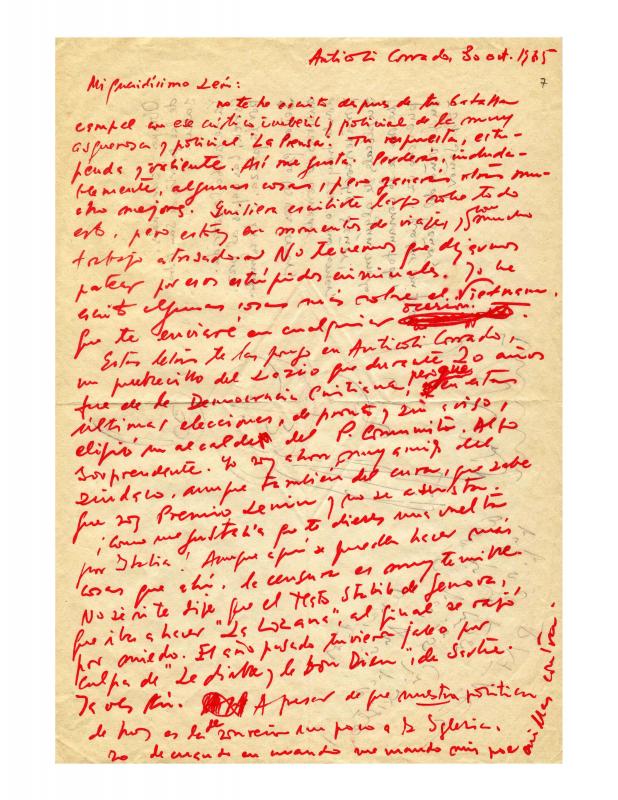 Anticoli Corrado, 30 oct. 1965
7
Mi queridísimo León:
no te he escrito después de tu batalla
campal con ese crítico imbécil y policial de la muy
asquerosa y policial La Prensa. Tu respuesta, estu-
penda y valiente. Así me gusta. Perderás, induda-
blemente, algunas cosas, pero ganarás otras mu-
cho mejores. Quisiera escribirte largo sobre todo
esto, pero estoy en momentos de viajes, y con mucho
trabajo atrasado. No tenemos que dejarnos
patear por esos estúpidos criminales. Yo he
escrito algunas cosas más sobre el Vietnam,
que te enviaré en cualquier ocasión.
Estas letras te las pongo en Anticoli Corrado,
un pueblecillo del Lazio que durante 20 años
fue de la Democracia Cristiana, pero que en estas
últimas elecciones, de pronto y sin aviso,
eligió un alcalde del P. Comunista. Algo
sorprendente. Yo soy ahora muy amigo del
sindaco, aunque también del cura, que sabe
que soy Premio Lenin y no se asusta.
¡Cómo me gustaría que te dieses una vuelta
por Italia! Aunque aquí se pueden hacer más
cosas que ahí, la censura es muy temible.
No sé si te dije que el Teatro Stabile de Genova,
que iba a hacer "La Lozana", al final se rajó
por miedo. El año pasado tuvieron jaleo por
culpa de "Le diable y le Bon Dieu", de Sartre.
Ya ves tú. A pesar de que nuestra política
de hoy es la de sonreir un poco a la Iglesia.
Yo de cuando en cuando me mando mis poe